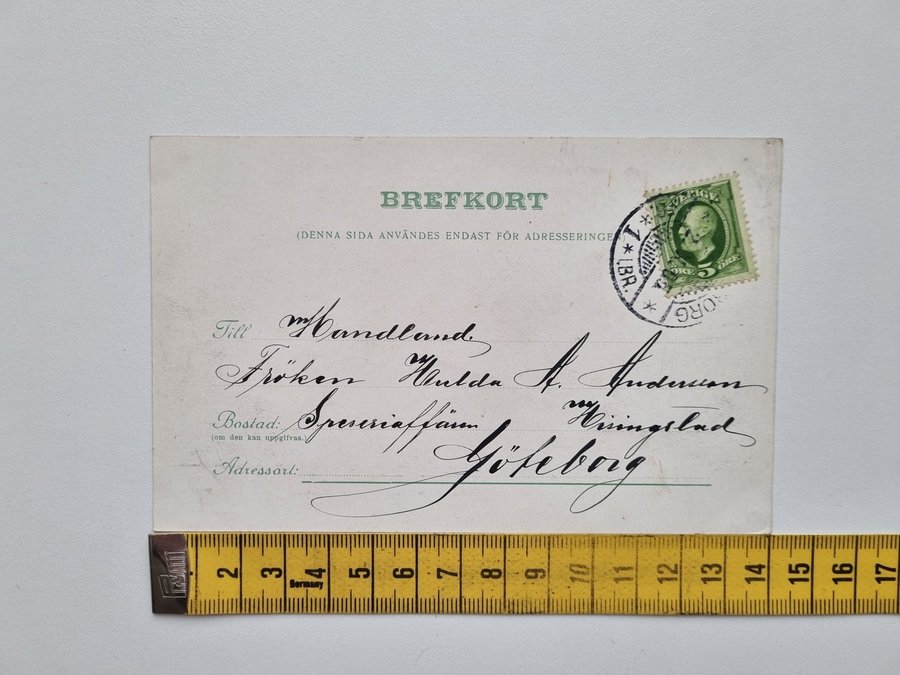 BREFKORT
(DENNA SIDA ANVÄNDES ENDAST FÖR ADRESSERINGE
SVERIGE
ÖRE 5 ÖRE
1 LBR.
BORG
Till Handland.
Fröken Hulda A. Andersson
Bostad: Speseriaffärn Hisingstad
(om den kan uppgifvas.)
Adressort: Göteborg
2 3 4 5 6 7 8 9 10 11 12 13 14 15 16 17
Germany